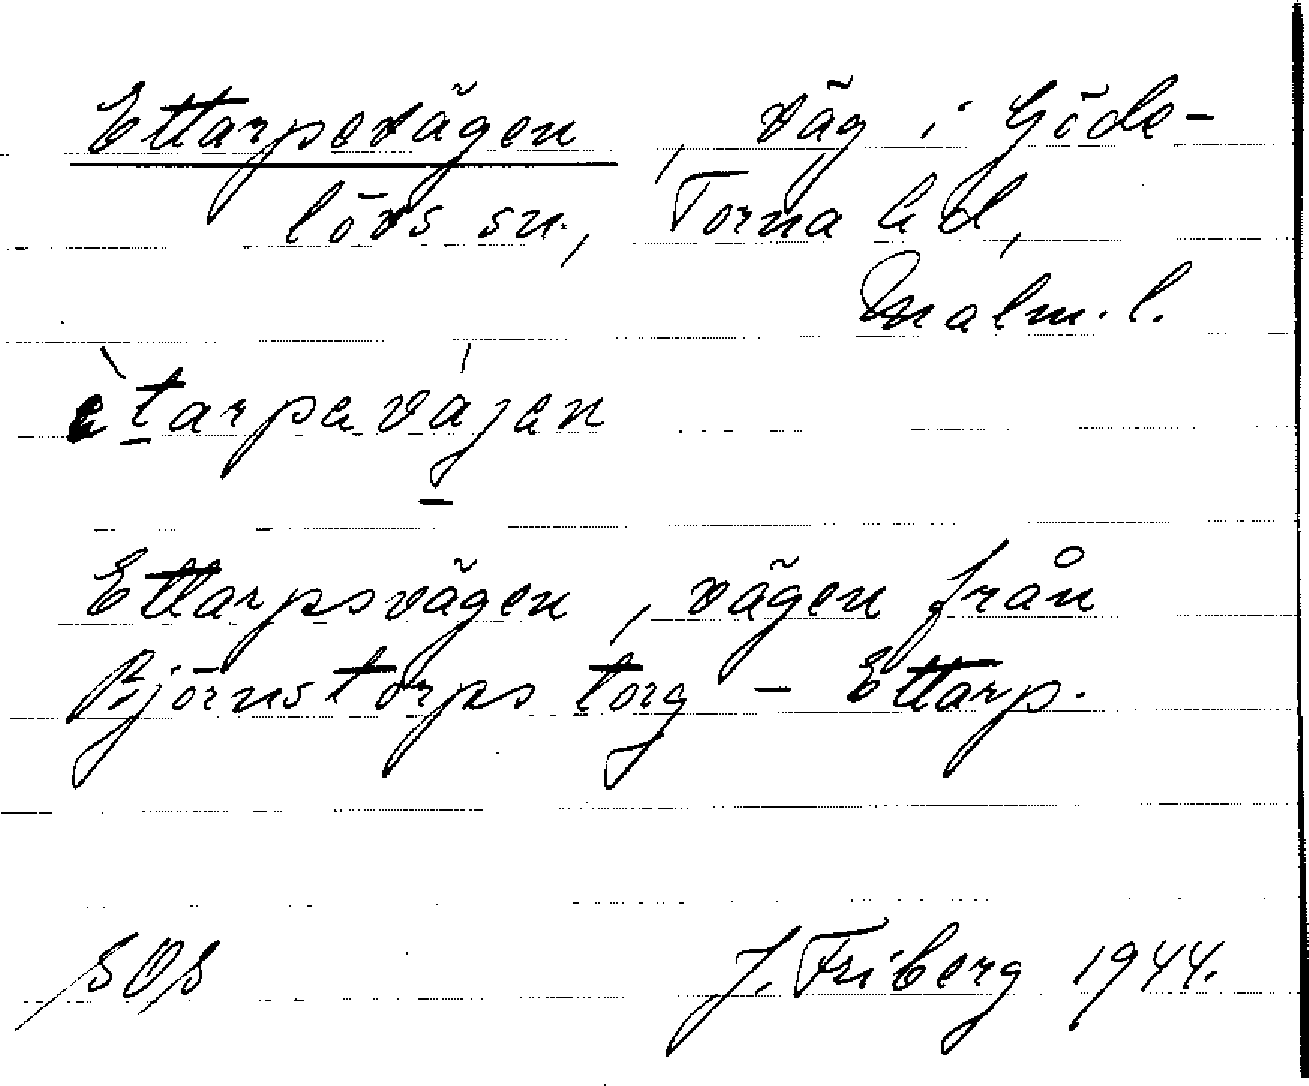 Ettarpevägen, väg i Göde-
lövs sn., Torna hd,
Malm. l.
ètarpavájan
Ettarpsvägen, vägen från
Björnstorps torg - Ettarp.
SOS J. Friberg 1944.